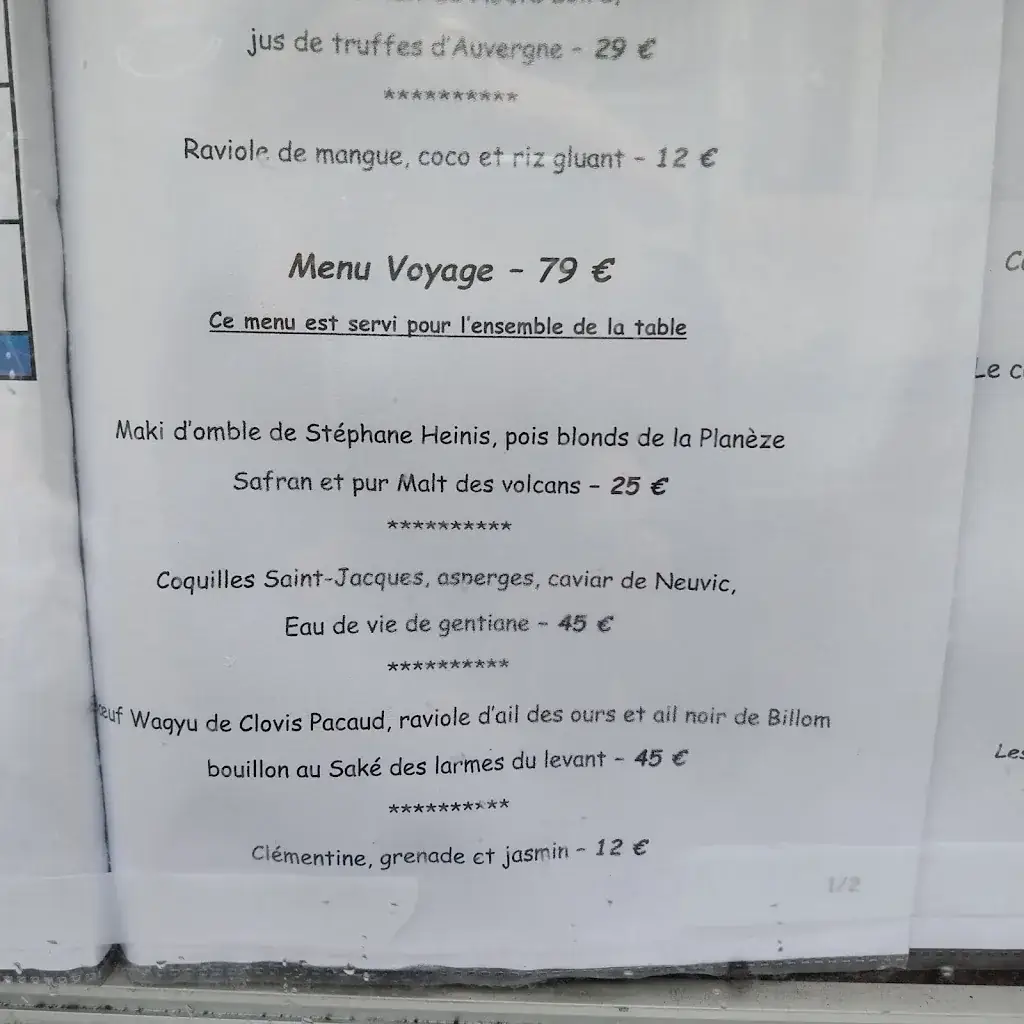 jus de truffes d'Auvergne - 29 €
**********
Raviole de mangue, coco et riz gluant - 12 €
Menu Voyage - 79 €
Ce menu est servi pour l'ensemble de la table
Maki d'omble de Stéphane Heinis, pois blonds de la Planèze
Safran et pur Malt des volcans - 25 €
**********
Coquilles Saint-Jacques, asperges, caviar de Neuvic,
Eau de vie de gentiane - 45 €
**********
Bœuf Wagyu de Clovis Pacaud, raviole d'ail des ours et ail noir de Billom
bouillon au Saké des larmes du levant - 45 €
**********
Clémentine, grenade et jasmin - 12 €
1/2
Le c
Les